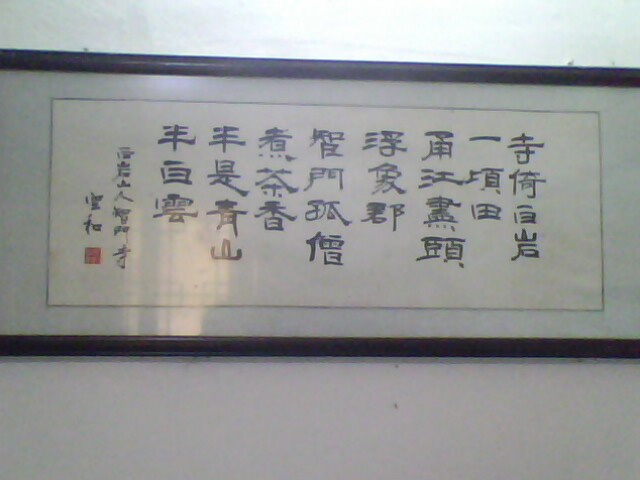 寺倚白岩
一頃田
甬江盡頭
浮象郡
智門孤僧
煮茶香
半是青山
半白雲
白岩山人智門寺